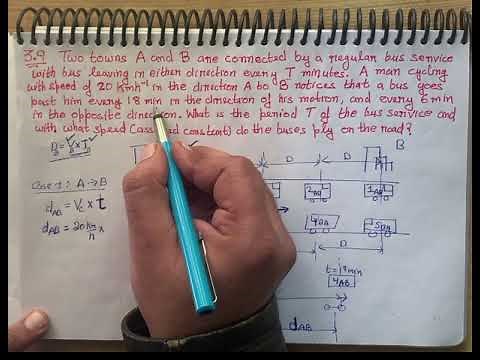 3.9 Two towns A and B are connected by a regular bus service
with bus leaving in either direction every T minutes. A man cycling
with speed of 20 kmh⁻¹ in the direction A to B notices that a bus goes
past him every 18 min in the direction of his motion, and every 6 min
in the opposite direction. What is the period T of the bus service and
with what speed (assumed constant) do the buses ply on the road?
B
D D
Case 1: A→B
d_AB = V_c × t
d_AB = 20 km/h ×
D
t=18min
4AB
d_AB